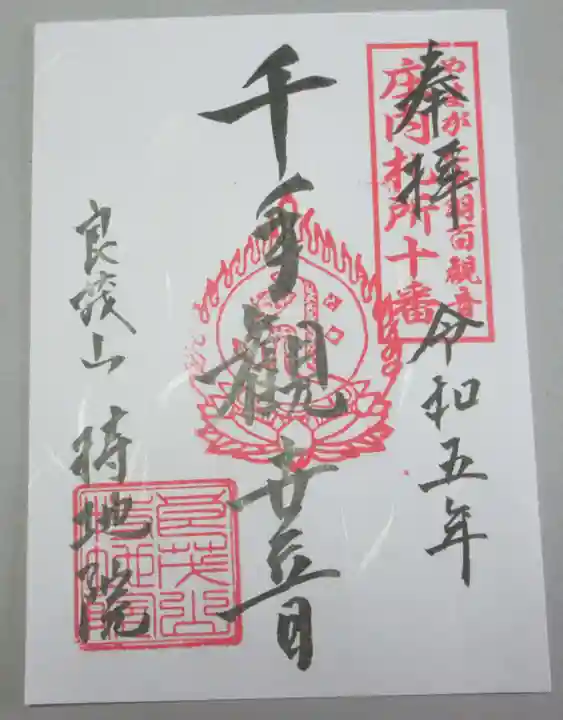 やまがた出羽百観音
庄内札所十番
奉拝
令和五年
千手観世音
良茂山 持地院
良茂山
持地院